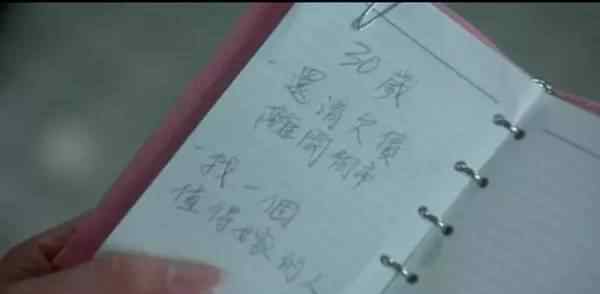 30歲
-還清欠債
離開市
-找一個
值得嫁的人